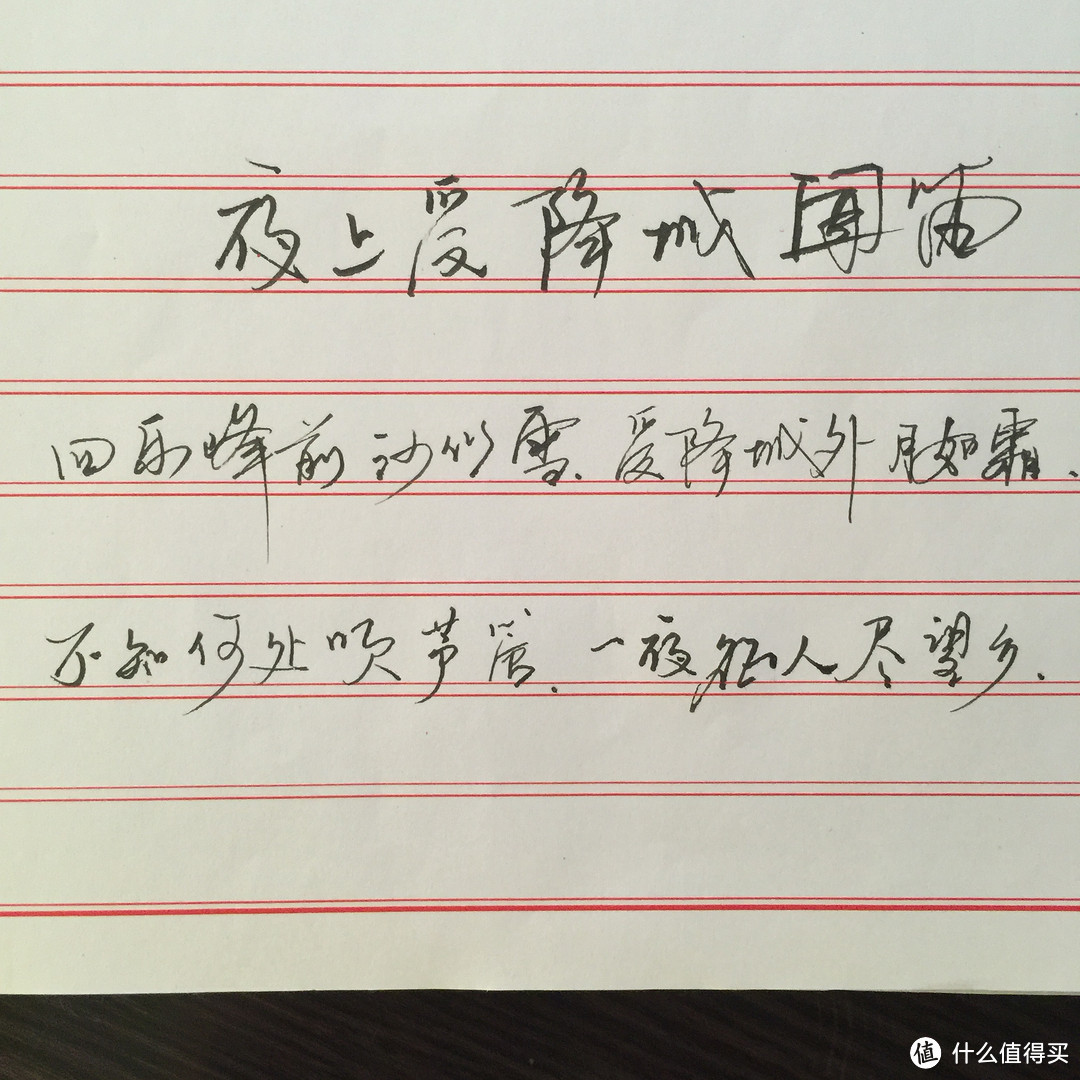 夜上受降城闻笛
回乐峰前沙似雪.受降城外月如霜.
不知何处吹芦管.一夜征人尽望乡.
值 什么值得买